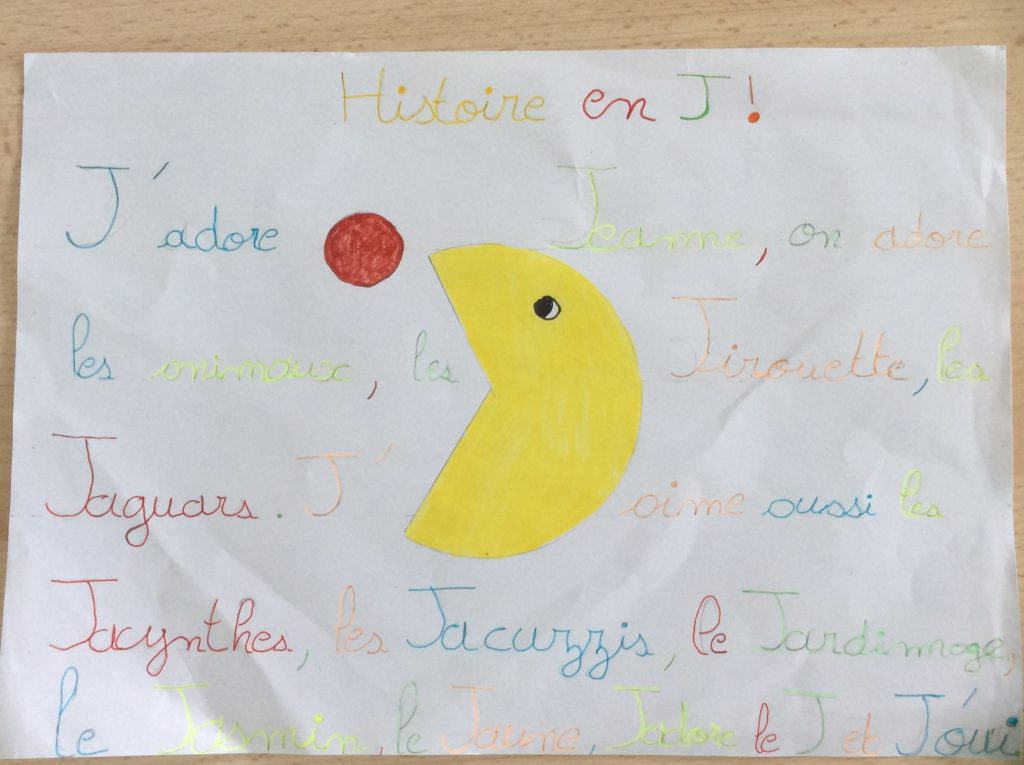 Histoire en J !
J'adore Jeanne, on adore
les animaux, les Jirouette, les
Jaguars. J'aime aussi les
Jacynthes, les Jacuzzis, le Jardinnage,
le Jasmin, le Jaune, Jadore le J et J'óui